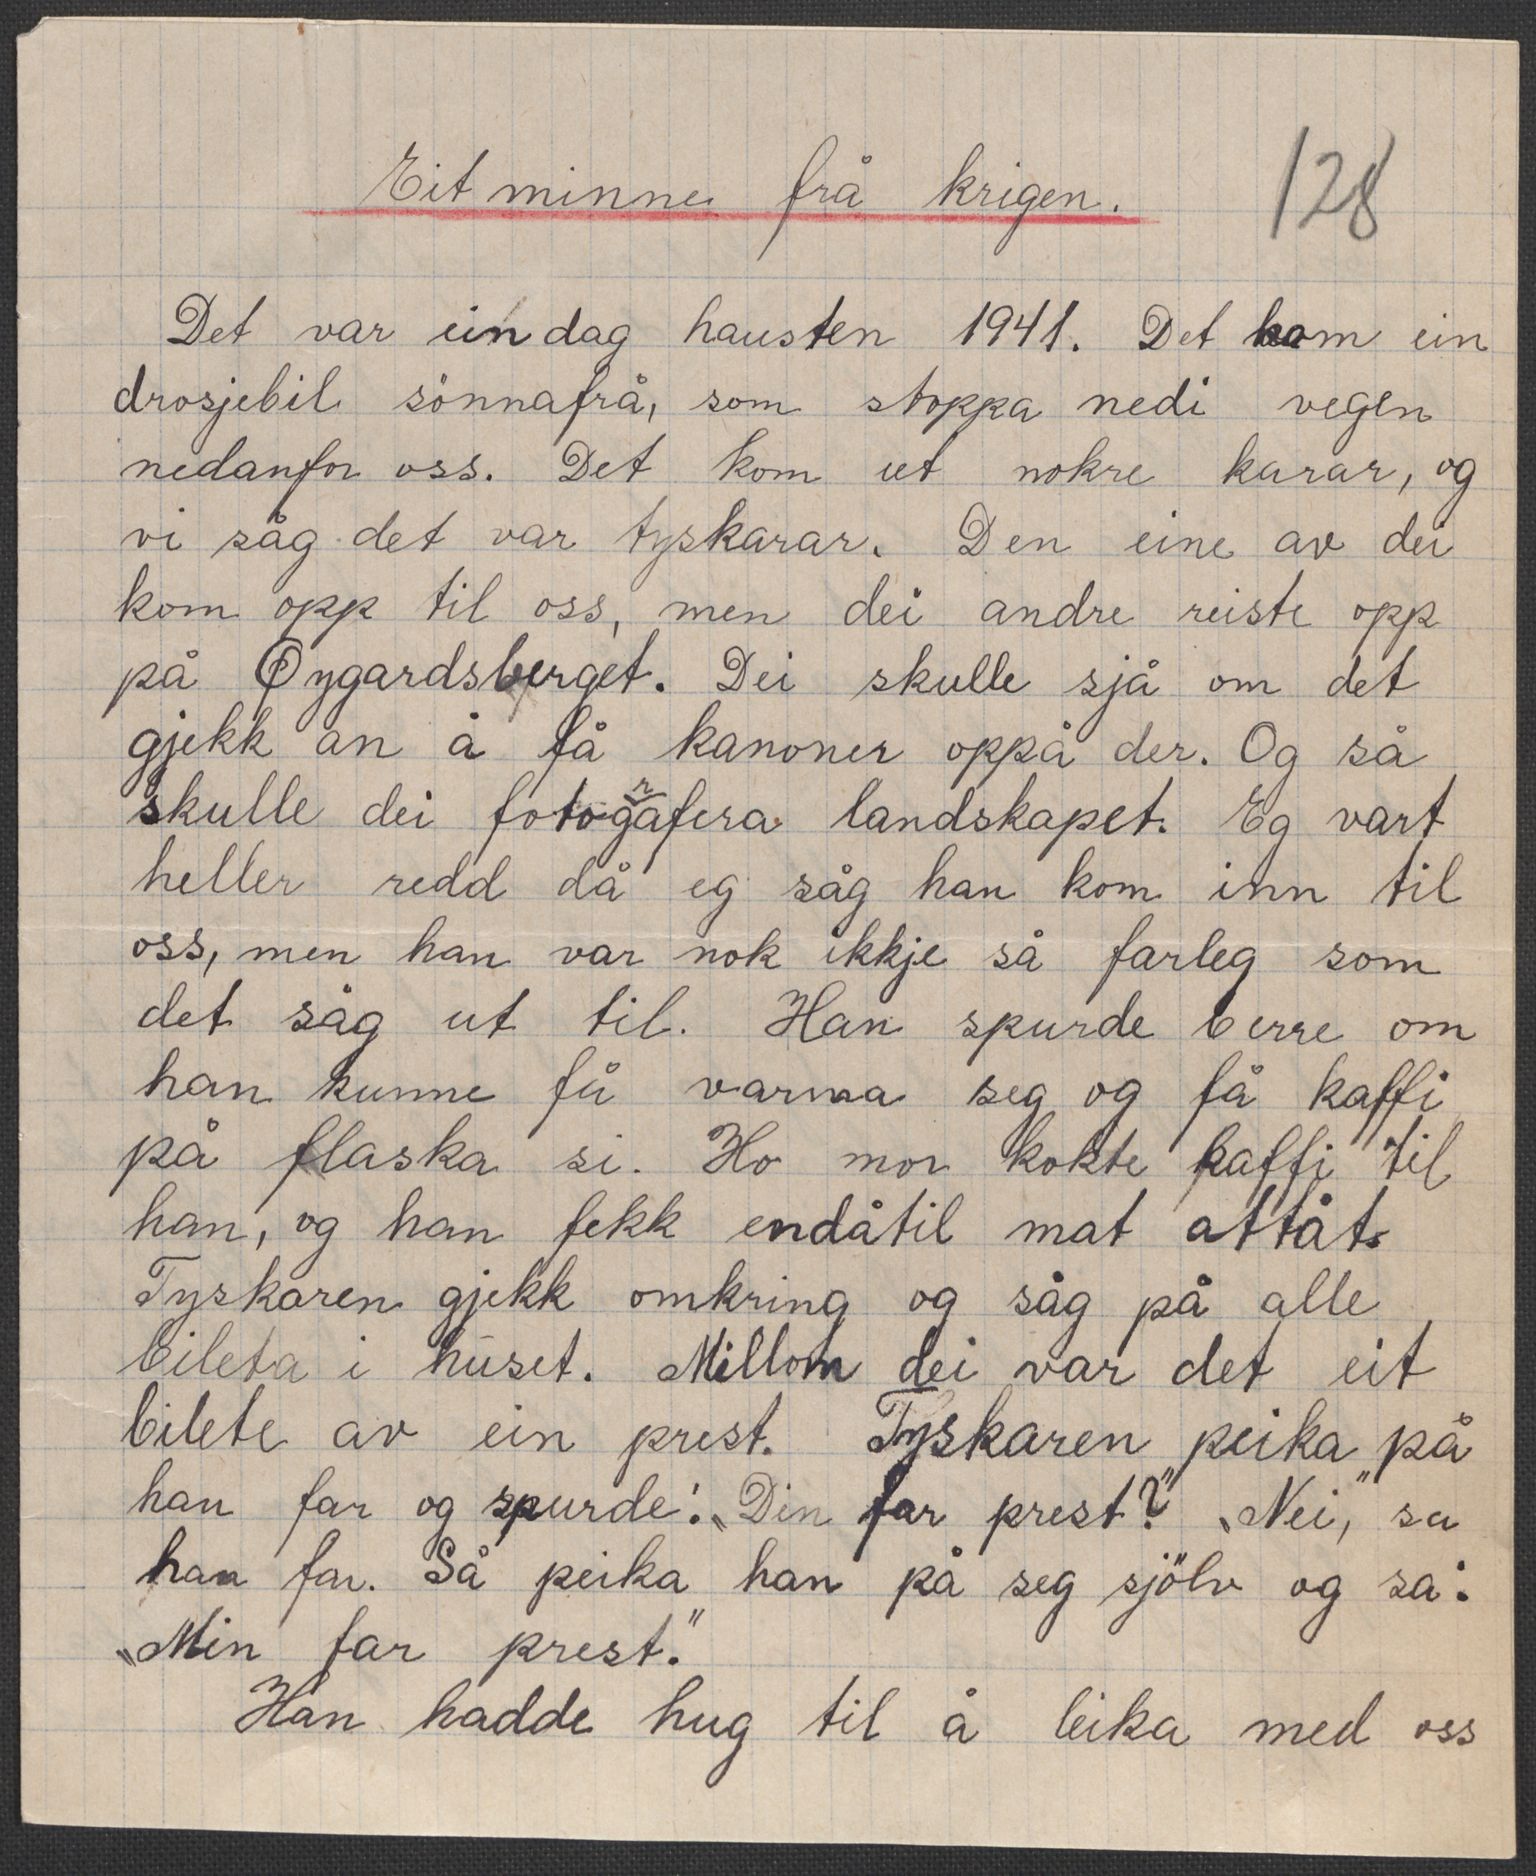 Eit minne frå krigen.
128
Det var ein dag hausten 1941. Det kom ein
drosjebil sönnafrå, som stoppa nedi vegen
nedanfor oss. Det kom ut nokre karar, og
vi såg det var tyskarar. Den eine av dei
kom opp til oss, men dei andre reiste opp
på Øygardsberget. Dei skulle sjå om det
gjekk an å få kanoner oppå der. Og så
skulle dei fotografera landskapet. Eg vart
heller redd då eg såg han kom inn til
oss, men han var nok ikkje så farleg som
det såg ut til. Han spurde berre om
han kunne få varma seg og få kaffi
på flaska si. Ho mor kokte kaffi til
han, og han fekk endåtil mat attåt.
Tyskaren gjekk omkring og såg på alle
bileta i huset. Millom dei var det eit
bilete av ein prest. Tyskaren peika på
han far og spurde: „Din far prest?" „Nei," sa
han far. Så peika han på seg sjölv og sa:
„Min far prest."
Han hadde hug til å leika med oss